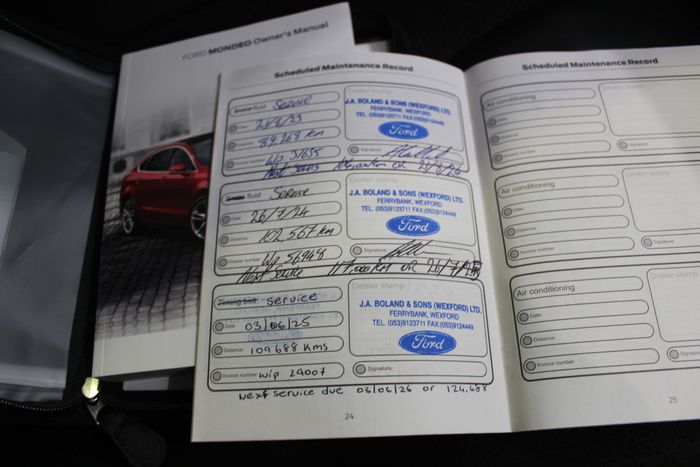 FORD MONDEO Owner's Manual
Scheduled Maintenance Record
fluid Service
Dealer stamp
Date:
J.A. BOLAND & SONS (WEXFORD) LTD.
FERRYBANK, WEXFORD
TEL. (053)9123711 FAX:(053)9124449
Ford
Distance: 89,268 Km
Invoice number: Wip 31635
Signature:
Next Service
fluid Service
Date: 26/7/24
Distance: 102,567 Km
Invoice number: Wip 56948
Dealer stamp
J.A. BOLAND & SONS (WEXFORD) LTD.
FERRYBANK, WEXFORD
TEL. (053)9123711 FAX:(053)9124449
Ford
Signature:
Next Service 117,000 Km OR 26/7/25
Timing belt: Service
Date: 03/06/25
Distance: 109688 Kms
Invoice number: Wip 29007
Dealer stamp
J.A. BOLAND & SONS (WEXFORD) LTD.
FERRYBANK, WEXFORD
TEL. (053)9123711 FAX:(053)9124449
Ford
Signature:
Next service due 03/06/26 or 124,688
24
Scheduled Maintenance Record
Air conditioning
Date:
Distance:
Invoice number:
Dealer stamp
Signature:
Air conditioning
Date:
Distance:
Invoice number:
Dealer stamp
Signature:
Air conditioning
Date:
Distance:
Invoice number:
Dealer stamp
Signature:
25